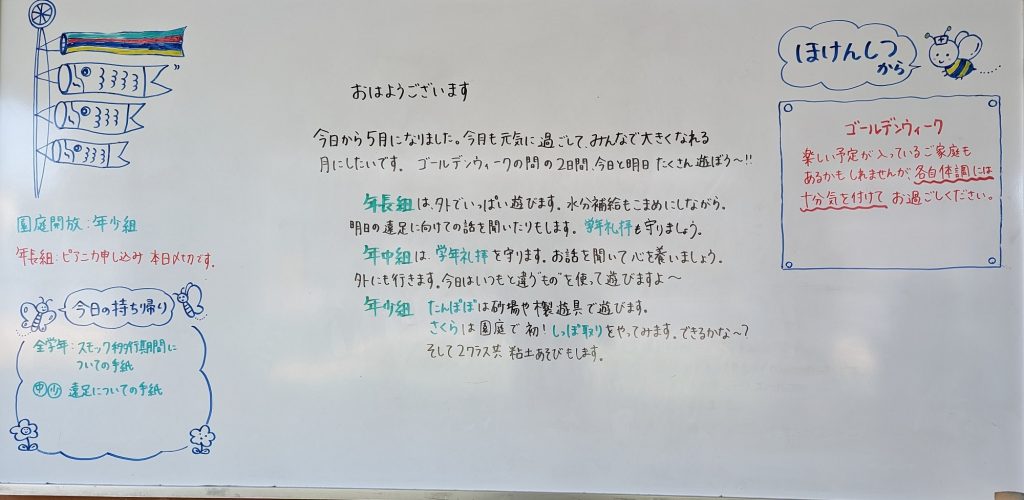 おはようございます
今日から5月になりました。今月も元気に過ごして、みんなで大きくなれる
月にしたいです。ゴールデンウィークの間の2日間、今日と明日たくさん遊ぼう〜!!
年長組は、外でいっぱい遊びます。水分補給もこまめにしながら。
明日の遠足に向けての話を聞いたりもします。学年礼拝も守りましょう。
年中組は、学年礼拝を守ります。お話を聞いて心を養いましょう。
外にも行きます。今日はいつもと違う"もの"を使って遊びますよ〜
年少組 たんぽぽは砂場や木製遊具で遊びます。
さくらは園庭で初!しっぽ取りをやってみます。できるかな〜?
そして2クラス共、粘土あそびもします。
園庭開放:年少組
年長組:ピアニカ申し込み 本日〆切です。
今日の持ち帰り
全学年:スモック移行期間に
ついての手紙
中少 遠足についての手紙
ほけんしつ
から
ゴールデンウィーク
楽しい予定が入っているご家庭も
あるかもしれませんが、各自体調には
十分気を付けてお過ごしください。